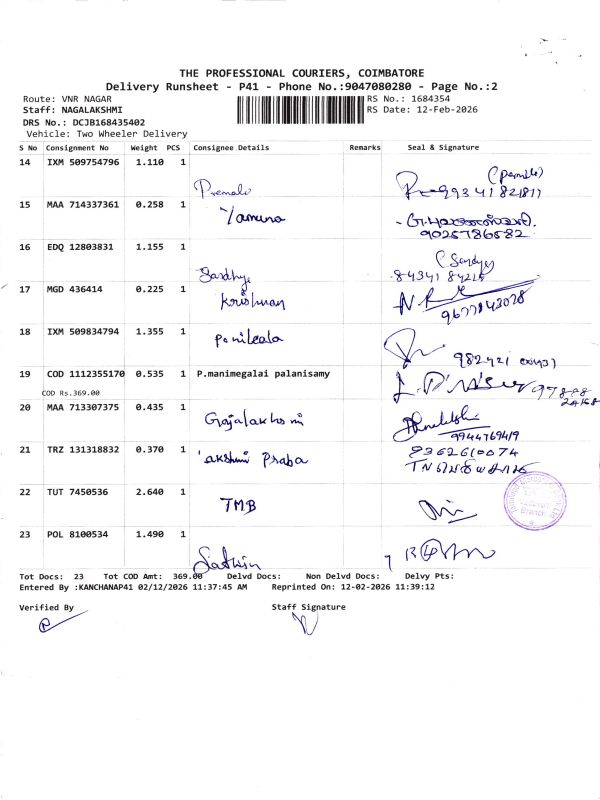 THE PROFESSIONAL COURIERS, COIMBATORE
Delivery Runsheet - P41 - Phone No.:9047080280 - Page No.:2
Route: VNR NAGAR
RS No.: 1684354
Staff: NAGALAKSHMI
RS Date: 12-Feb-2026
DRS No.: DCJB168435402
Vehicle: Two Wheeler Delivery
S No Consignment No Weight PCS Consignee Details Remarks Seal & Signature
14 IXM 509754796 1.110 1
Premala
15 MAA 714337361 0.258 1
Yamuna
9025786582
16 EDQ 12803831 1.155 1
Sandhya
(Sandya)
17 MGD 436414 0.225 1
Krishnan
9677143078
18 IXM 509834794 1.355 1
19 COD 1112355170 0.535 1 P.manimegalai palanisamy
COD Rs.369.00
20 MAA 713307375 0.435 1
Gajalakshmi
9944769419
21 TRZ 131318832 0.370 1
Lakshmi Praba
9362610074
22 TUT 7450536 2.640 1
TMB
23 POL 8100534 1.490 1
Satwin
Tot Docs: 23 Tot COD Amt: 369.00 Delvd Docs: Non Delvd Docs: Delvy Pts:
Entered By :KANCHANAP41 02/12/2026 11:37:45 AM Reprinted On: 12-02-2026 11:39:12
Verified By
Staff Signature